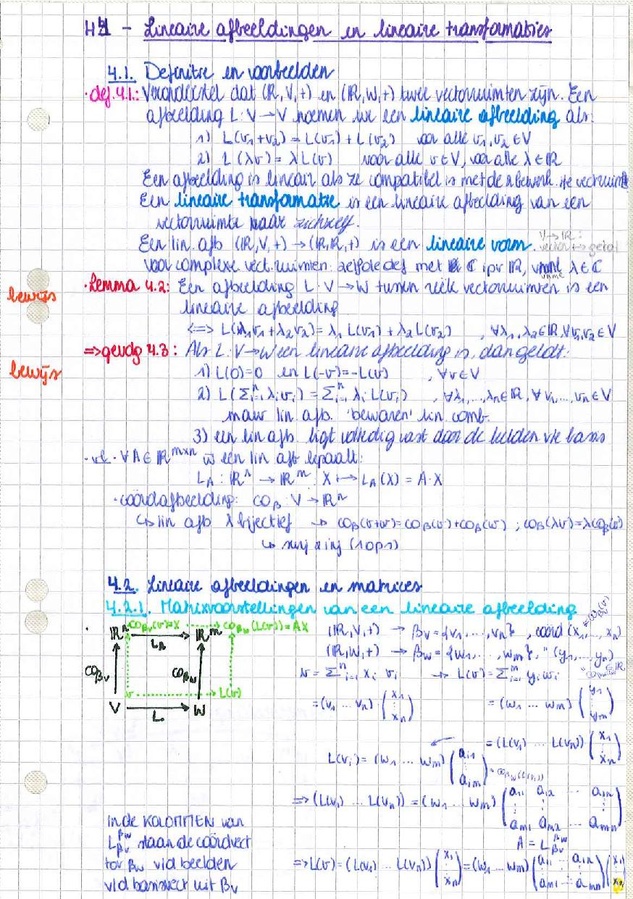 H4 - Lineaire afbeeldingen en lineaire transformaties
4.1. Definitie en voorbeelden
• def. 4.1.: Veronderstel dat (ℝ,V,+) en (ℝ,W,+) twee vectorruimten zijn. Een
afbeelding L: V → V noemen we een lineaire afbeelding als:
1) L(v₁+v₂) = L(v₁) + L(v₂) voor alle v₁,v₂ ∈ V
2) L(λv) = λL(v) voor alle v ∈ V, voor alle λ ∈ ℝ
Een afbeelding is lineair als ze compatibel is met de
Een lineaire transformatie is een lineaire afbeelding van een
vectorruimte naar zichzelf.
Een lin. afb. (ℝ,V,+) → (ℝ,ℝ,+) is een lineaire vorm. V→ℝ:
voor complexe vect. ruimten: zelfde def met ℂ ipv ℝ, λ ∈ ℂ
bewijs
• Lemma 4.2: Een afbeelding L: V → W tussen reële vectorruimten is een
lineaire afbeelding
<=> L(λ₁v₁+λ₂v₂) = λ₁L(v₁) + λ₂L(v₂) , ∀λ₁,λ₂∈ℝ, ∀v₁,v₂∈V
bewijs
=> gevolg 4.3: Als L: V → W een lineaire afbeelding is, dan geldt:
1) L(0)=0 en L(-v)=-L(v) , ∀v∈V
2) L(Σⁿᵢ₌₁ λᵢvᵢ) = Σⁿᵢ₌₁ λᵢL(vᵢ) , ∀λ₁,...,λₙ∈ℝ, ∀v₁,...,vₙ∈V
maw lin afb. 'bewaren' lin comb.
3) een lin afb. ligt volledig vast door de beelden vie basis
• vb. • ∀A ∈ ℝᵐˣⁿ w een lin afb bepaalt:
L_A : ℝⁿ → ℝᵐ : X ↦ L_A(X) = A·X
• coördafbeelding: co_β : V → ℝⁿ
↳ lin afb & bijectief → co_β(v+w)=co_β(v)+co_β(w) ; co_β(λv)=λco_β(v)
↳ surj & inj (1op1)
4.2. Lineaire afbeeldingen en matrices
4.2.1. Matrixvoorstellingen van een lineaire afbeelding
co_βv(v)=X → co_βw(L(v))=AX
ℝⁿ → ℝᵐ
L_A
co_βv co_βw
v → L(v)
V → W
L
(ℝ,V,+) → βv = {v₁,...,vₙ}, coörd (x₁,...,xₙ)
(ℝ,W,+) → βw = {w₁,...,wₘ}, " (y₁,...,yₘ)
v = Σⁿᵢ₌₁ xᵢ vᵢ → L(v) = Σᵐᵢ₌₁ yᵢ wᵢ
= (v₁ ... vₙ) (x₁ ⋮ xₙ) = (w₁ ... wₘ) (y₁ ⋮ yₘ)
= (L(v₁) ... L(vₙ)) (x₁ ⋮ xₙ)
L(vᵢ) = (w₁ ... wₘ) (a₁ᵢ ⋮ aₘᵢ)
=> (L(v₁) ... L(vₙ)) = (w₁ ... wₘ) (a₁₁ a₁₂ ... a₁ₙ ⋮ aₘ₁ aₘ₂ ... aₘₙ)
A = L^βw_βv
=> L(v) = (L(v₁) ... L(vₙ)) (x₁ ⋮ xₙ) = (w₁ ... wₘ) (a₁₁ ... a₁ₙ ⋮ aₘ₁ ... aₘₙ) (x₁ ⋮ xₙ)
In de KOLOMMEN van
L^βw_βv staan de coördvect
tov βw vid beelden
vid basisvect uit βv